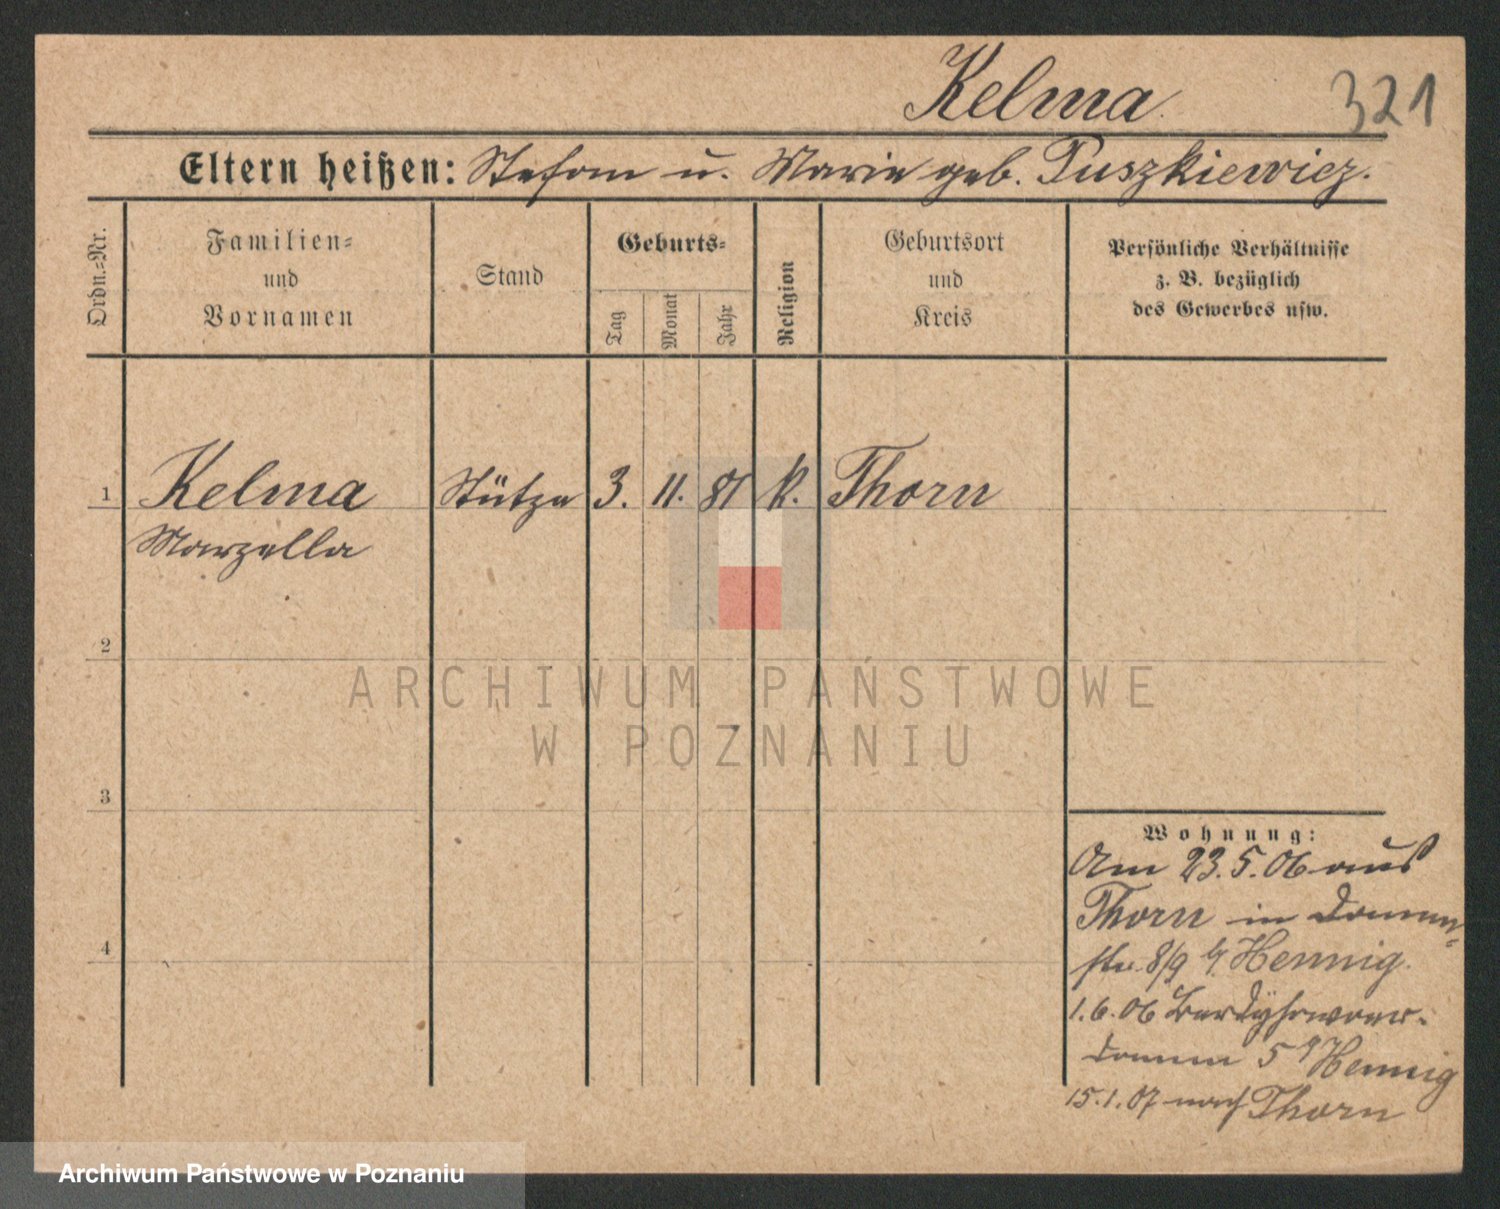 Kelma
321
Eltern heißen: Stefan u. Marie geb. Puszkiewicz.
Ordn.=Nr.
Familien=
und
Vornamen
Stand
Geburts=
Tag
Monat
Jahr
Religion
Geburtsort
und
Kreis
Persönliche Verhältnisse
z. B. bezüglich
des Gewerbes usw.
1 Kelma Stütze 3. 11. 81 k. Thorn
Marzella
2
ARCHIWUM PAŃSTWOWE
W POZNANIU
3
Wohnung:
Am 23.5.06 aus
Thorn in Damm=
4
str. 8/9 Hennig.
1.6.06
damm 5 Hennig
15.1.07 nach Thorn
Archiwum Państwowe w Poznaniu